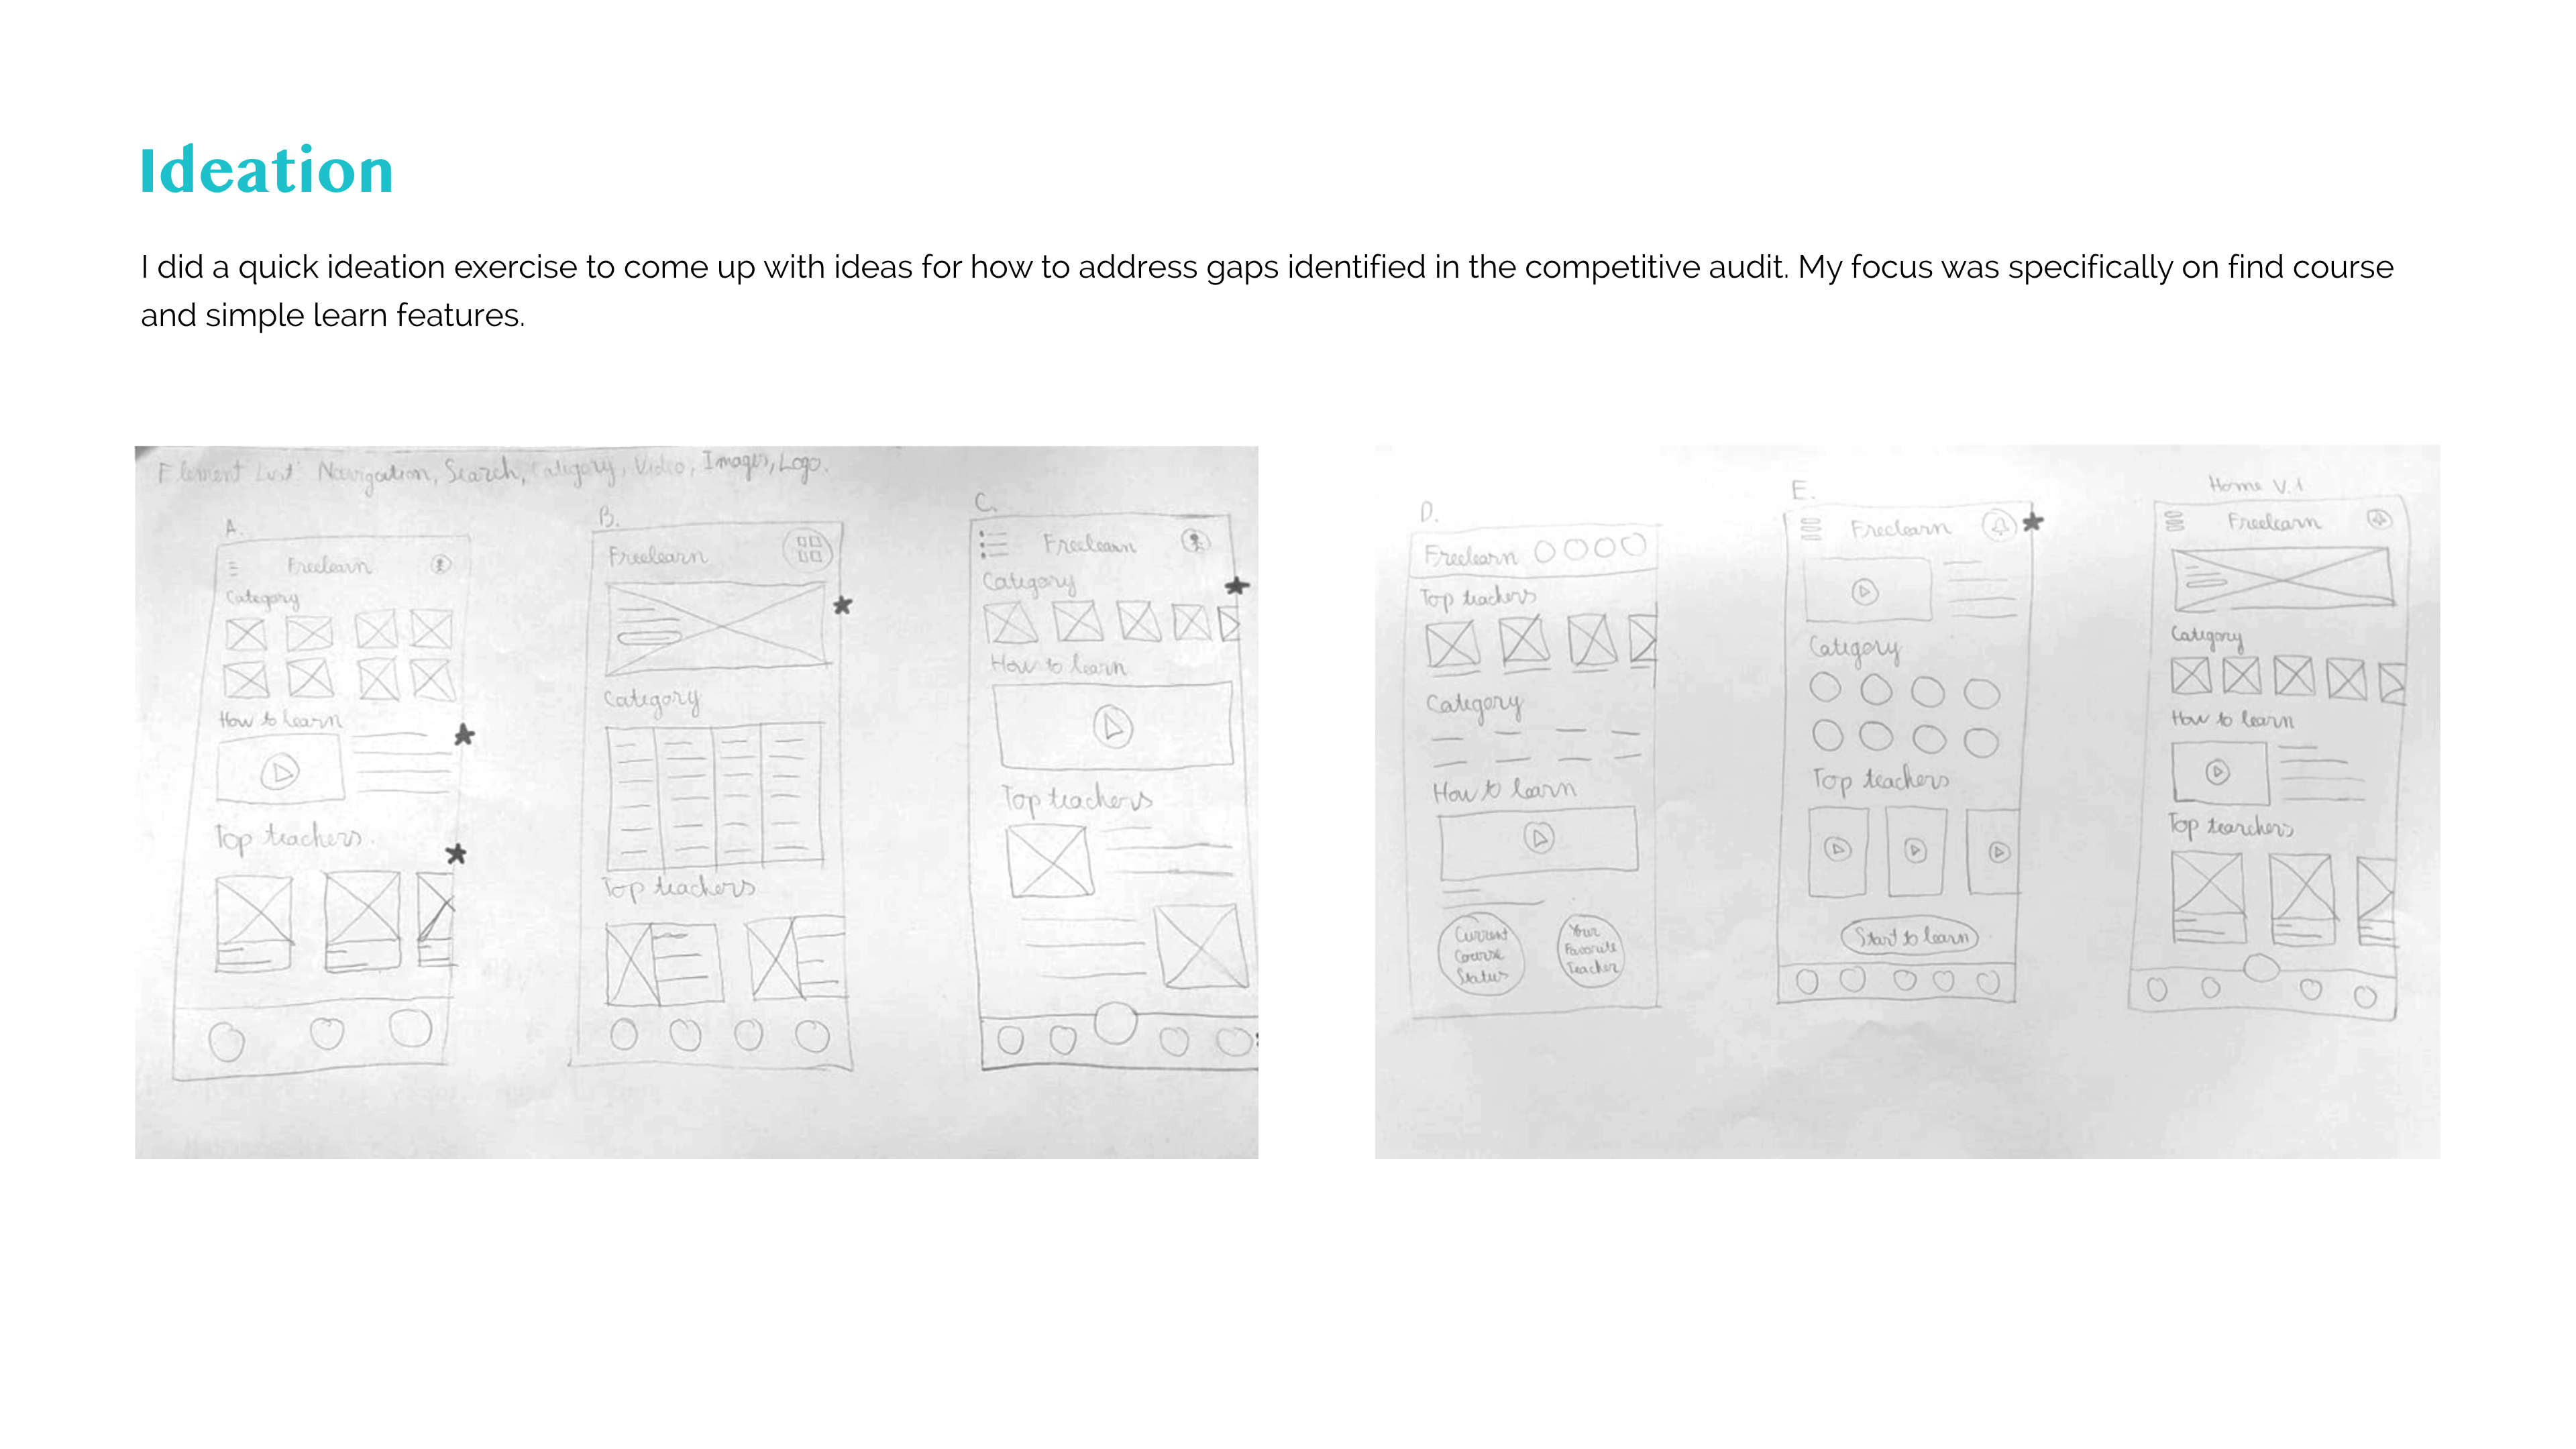 Ideation
I did a quick ideation exercise to come up with ideas for how to address gaps identified in the competitive audit. My focus was specifically on find course
and simple learn features.
Element List: Navigation, Search, Category, Video, Images, Logo.
A.
Freelearn
Category
How to learn
Top teachers.
B.
Freelearn
Category
Top teachers
C.
Freelearn
Category
How to learn
Top teachers
D.
Freelearn
Top teachers
Category
How to learn
Current
Course
Status
Your
Favorite
Teacher
E.
Freelearn
Category
Top teachers
Start to learn
Home V.1
Freelearn
Category
How to learn
Top tearchers